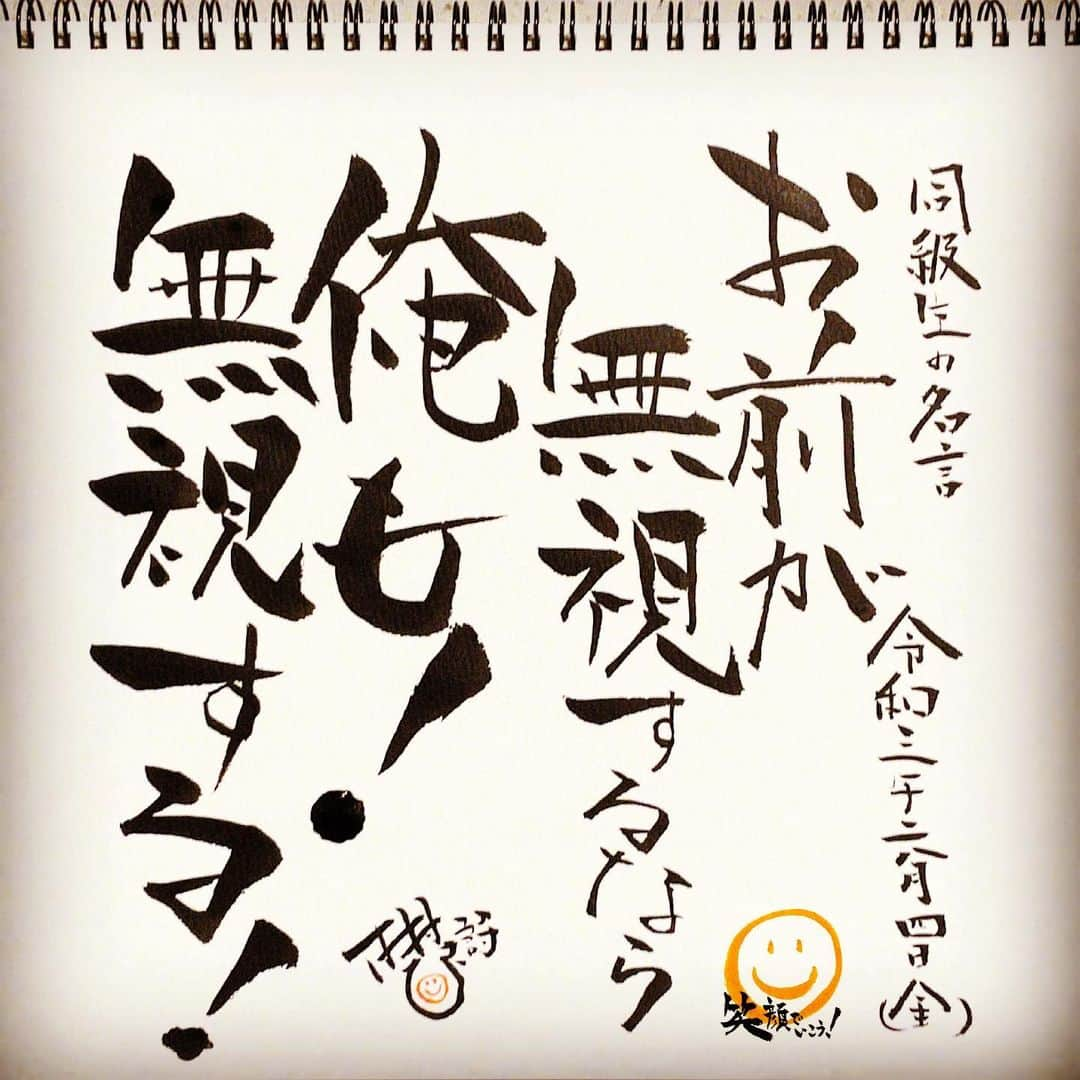 同級生の名言
令和三年六月四日(金)
お前が
無視するなら
俺も!
無視する!
笑顔でいこう!